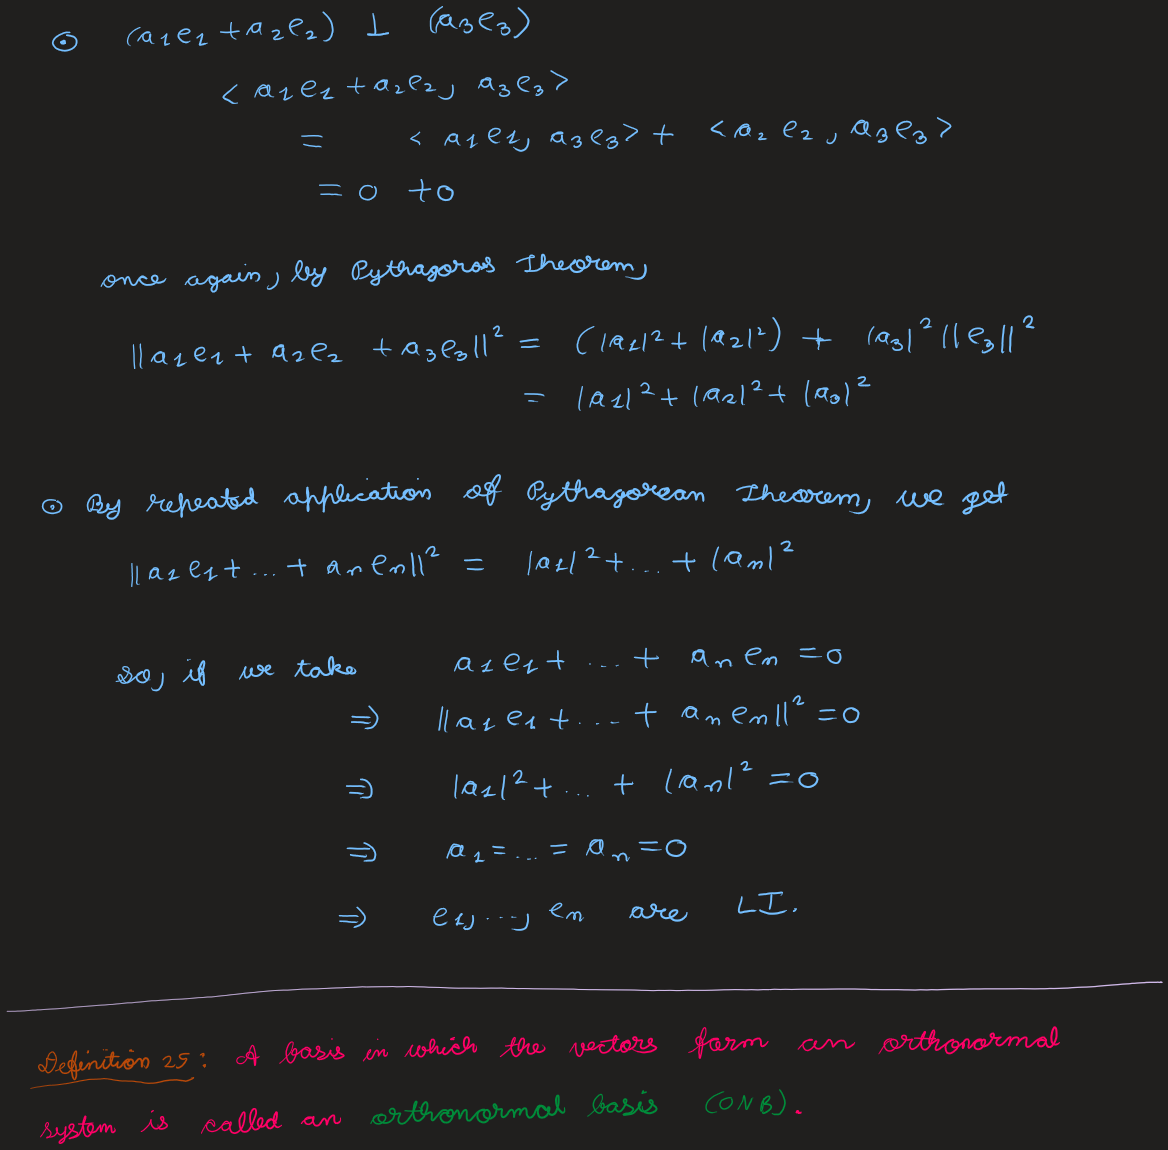 ⊙ (a₁e₁ + a₂e₂) ⊥ (a₃e₃)
< a₁e₁ + a₂e₂, a₃e₃>
= < a₁e₁, a₃e₃> + <a₂ e₂, a₃e₃>
= 0 + 0
once again, by Pythagoras Theorem,
||a₁e₁ + a₂e₂ + a₃e₃||² = (|a₁|² + |a₂|²) + |a₃|² ||e₃||²
= |a₁|² + |a₂|² + |a₃|²
⊙ By repeated application of Pythagorean Theorem, we get
||a₁e₁ + ... + aₙeₙ||² = |a₁|² + ... + |aₙ|²
so, if we take a₁e₁ + ... + aₙeₙ = 0
⇒ ||a₁e₁ + ... + aₙeₙ||² = 0
⇒ |a₁|² + ... + |aₙ|² = 0
⇒ a₁ = ... = aₙ = 0
⇒ e₁, ..., eₙ are LI.
Definition 25: A basis in which the vectors form an orthonormal
system is called an orthonormal basis (ONB).